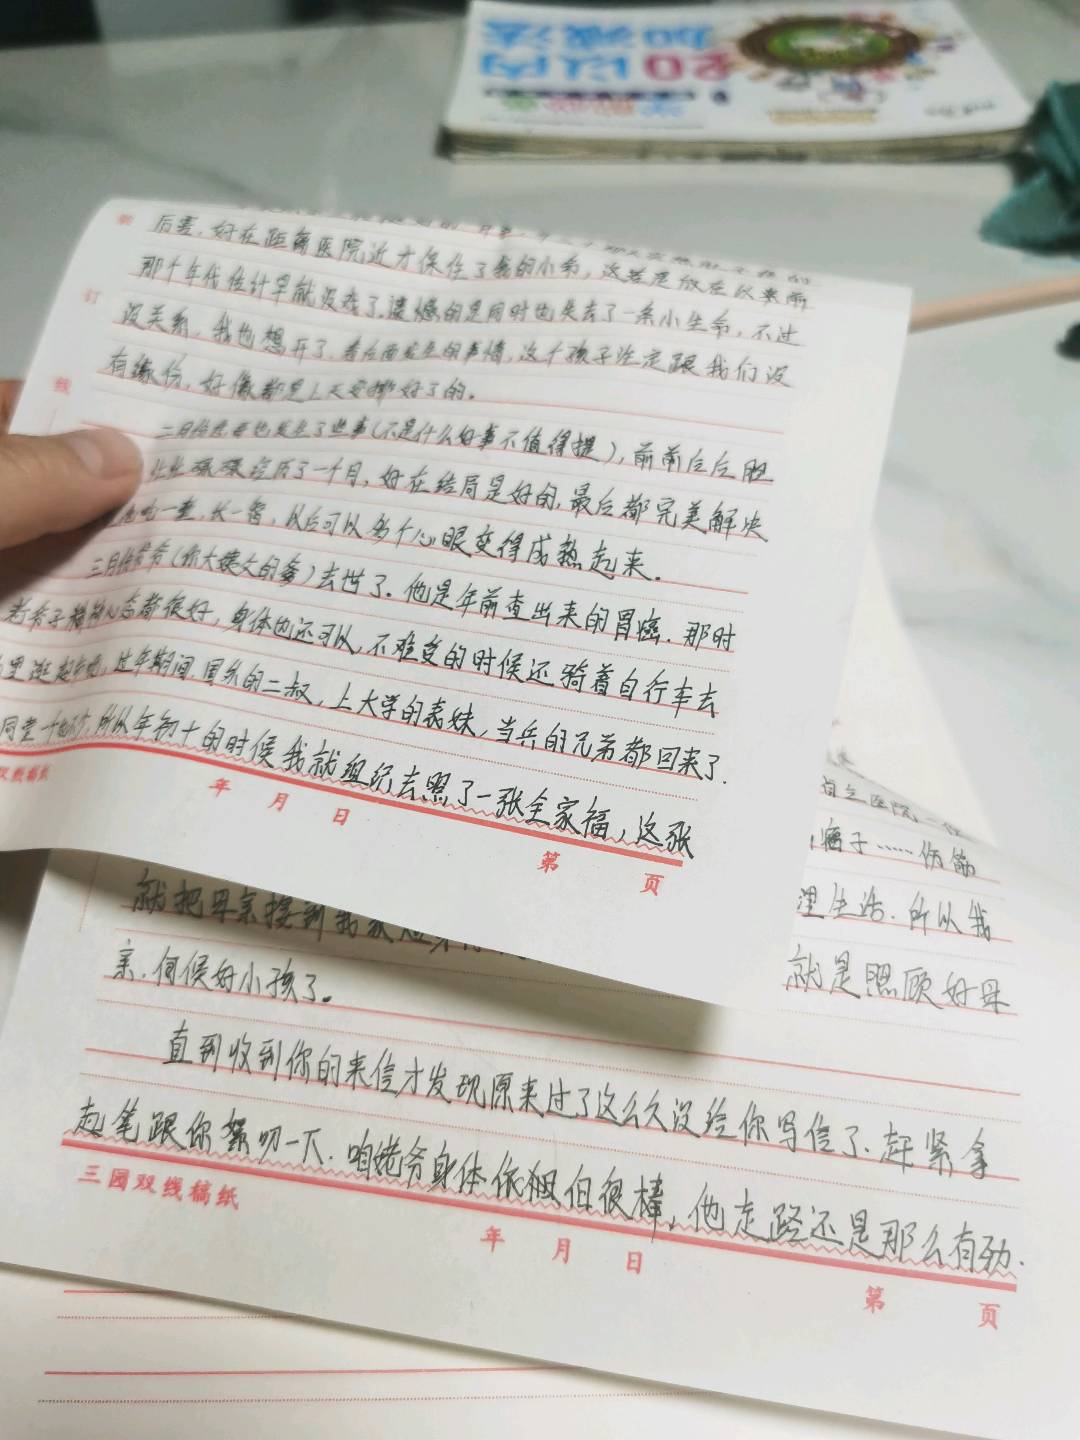 20以内
加减法
后害,好在距离医院近才保住了我的小命,这若是放在以来前
那个年代估计早就没戏了.遗憾的是同时也失去了一条小生命,不过
没关系,我也想开了.看后面发生的事情,这个孩子注定跟我们没
有缘份,好像都是上天安排好了的。
二月份发生了些事(不是什么好事不值得提),前前后后胆
经历了一个月,好在结局是好的,最后都完美解决
吃一堑,长一智,以后可以多个心眼变得成熟起来.
三月份爷爷(你大姨父的爹)去世了.他是年前查出来的胃癌.那时
老爷子精神心态都很好,身体也还可以,不难受的时候还骑着自行车去
里逛,过年期间,国外的二叔,上大学的表妹,当兵的兄弟都回来了.
同堂,所以年初十的时候我就组织去照了一张全家福,这张
双线稿纸
年 月 日
第 页
医院
痛子……伤筋
里生活.所以我
就把母亲接到我家 就是照顾好母
亲.伺候好小孩了。
直到收到你的来信才发现原来过了这么久没给你写信了.赶紧拿
起笔跟你絮叨一下.咱姥爷身体依旧很棒,他走路还是那么有劲.
三园双线稿纸
年 月 日
第 页
订
线